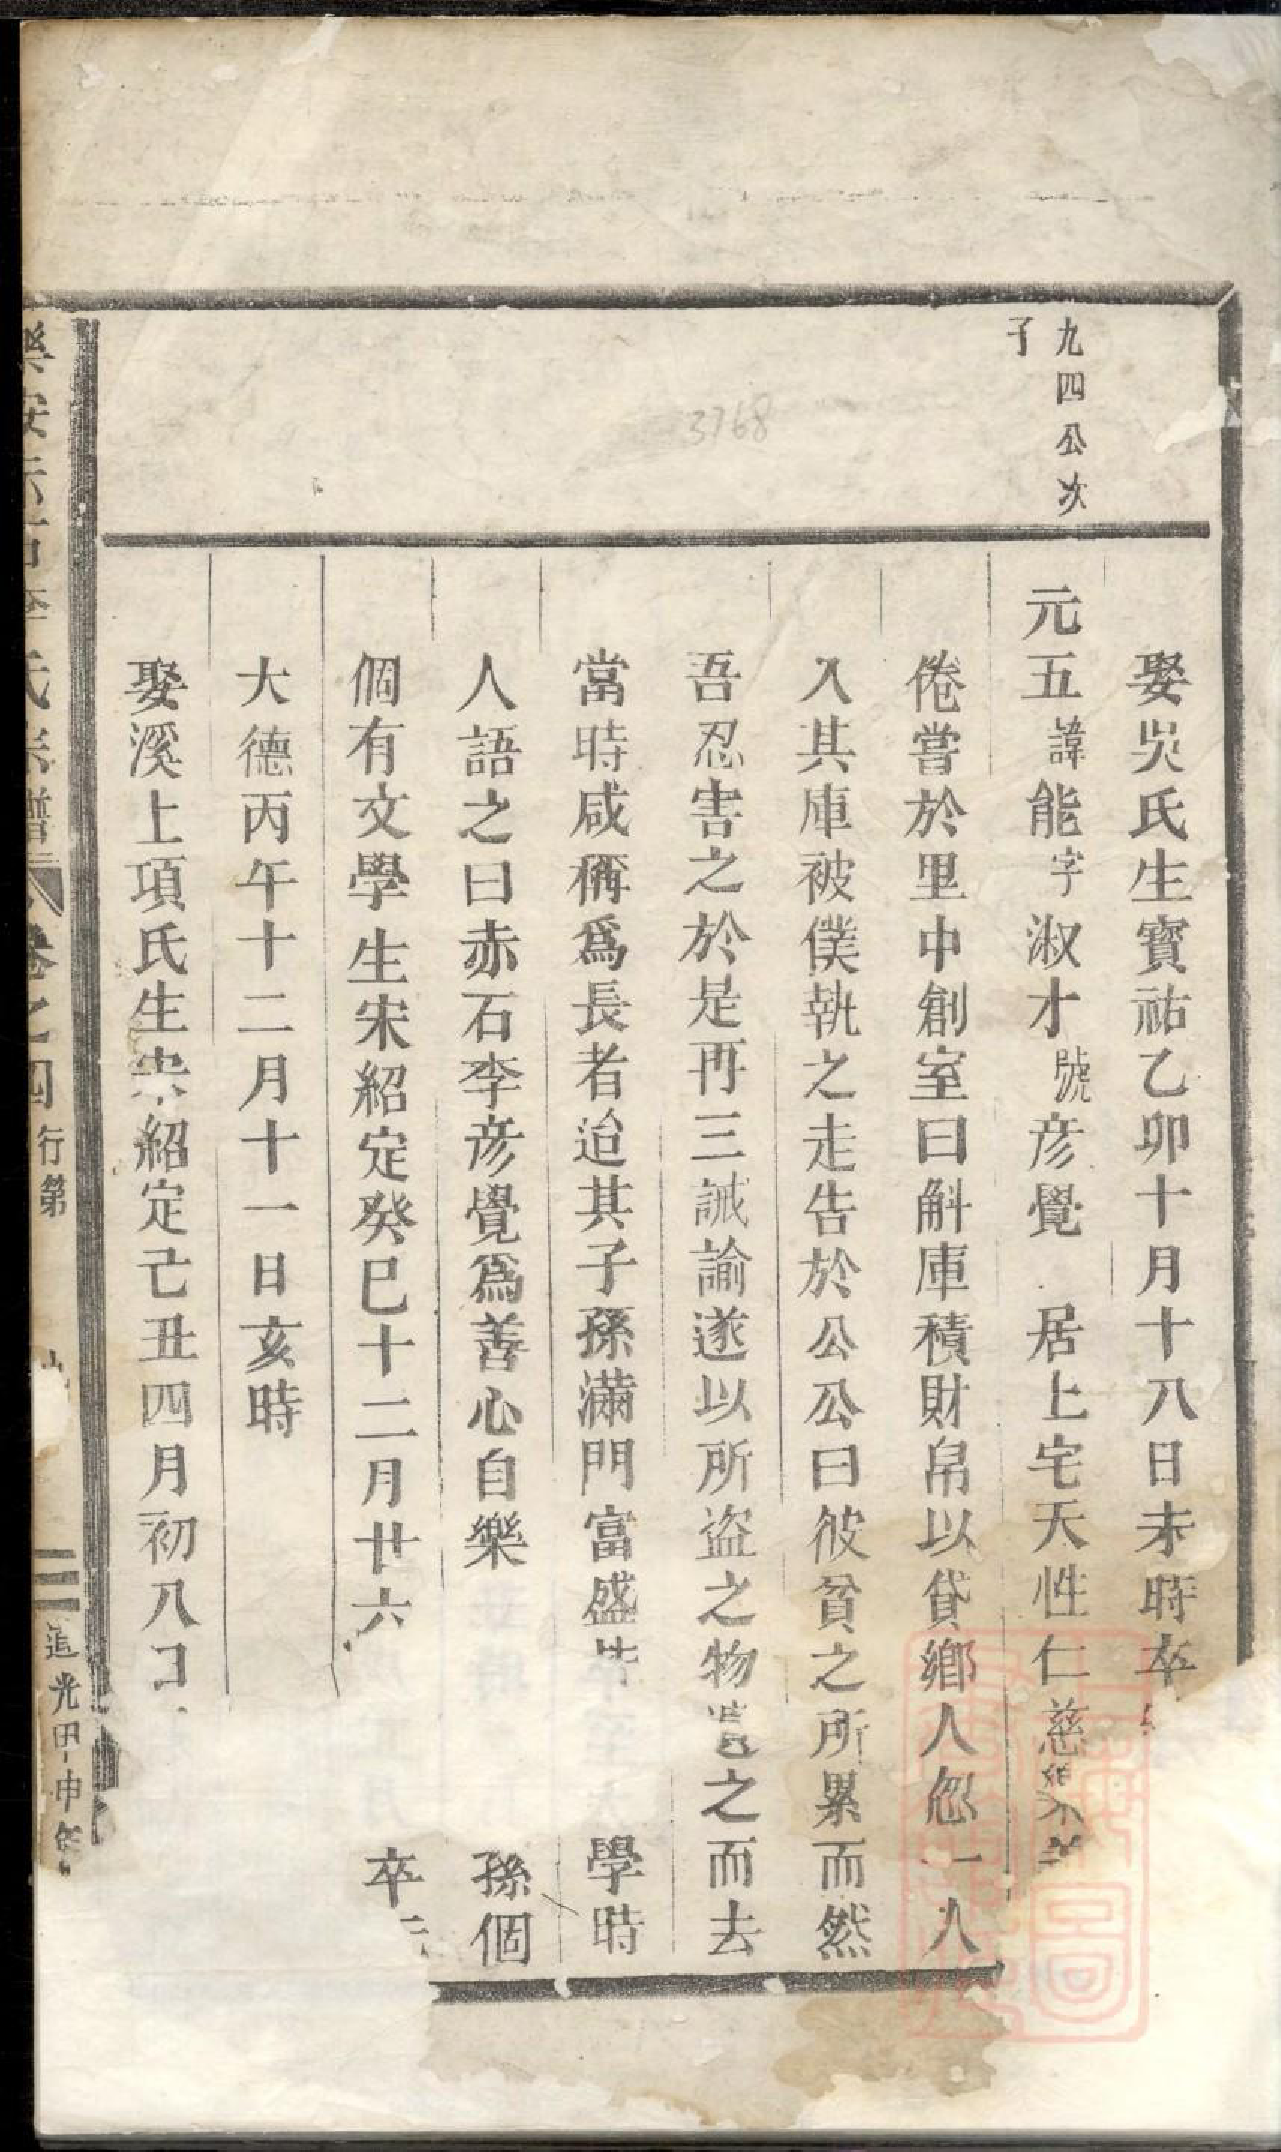 九四公次
子
娶吳氏生寶祐乙卯十月十八日未時卒
元五諱能字淑才號彦覺 居上宅天性仁慈樂善
倦嘗於里中創室曰斛庫積財帛以貸鄉人忽一人
入其庫被僕執之走告於公公曰彼貧之所累而然
吾忍害之於是再三誡諭遂以所盜之物 之而去
當時咸稱爲長者迨其子孫滿門富盛 學時
人語之曰赤石李彦覺爲善心自樂 孫個
個有文學生宋紹定癸巳十二月廿六 卒元
大德丙午十二月十一日亥時
娶溪上項氏生宋紹定己丑四月初八日
樂安赤石李氏宗譜 卷之四 行第 三 道光甲申年
3768